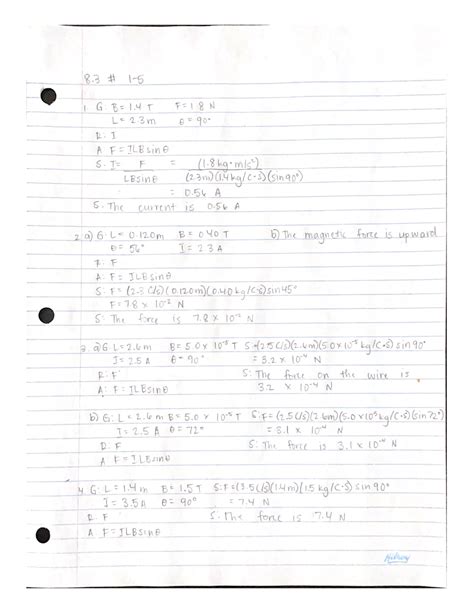 8.3 # 1-5
1. G: B = 1.4 T F = 1.8 N
L = 2.3 m θ = 90°
R: I
A: F = ILBsinθ
S: I = F = (1.8 kg·m/s²)
LBsinθ (2.3m)(1.4 kg/C·s)(sin 90°)
= 0.56 A
S: The current is 0.56 A
2. a) G: L = 0.120m B = 0.40 T b) The magnetic force is upward
θ = 56° I = 2.3 A
R: F
A: F = ILBsinθ
S: F = (2.3 C/s)(0.120m)(0.40 kg/C·s) sin 45°
F = 7.8 x 10⁻² N
S: The force is 7.8 x 10⁻² N
3. a) G: L = 2.6m B = 5.0 x 10⁻⁵ T S: (2.5 C/s)(2.6m)(5.0 x 10⁻⁵ kg/C·s) sin 90°
I = 2.5 A θ = 90° = 3.2 x 10⁻⁴ N
R: F S: The force on the wire is
A: F = ILBsinθ 3.2 x 10⁻⁴ N
b) G: L = 2.6 m B = 5.0 x 10⁻⁵ T S: F = (2.5 C/s)(2.6m)(5.0 x 10⁵ kg/C·s)(sin 72°)
I = 2.5 A θ = 72° = 3.1 x 10⁻⁴ N
R: F S: The force is 3.1 x 10⁻⁴ N
A: F = ILBsinθ
4. G: L = 1.4 m B = 1.5 T S: F = (3.5 C/s)(1.4m)(1.5 kg/C·s) sin 90°
I = 3.5 A θ = 90° = 7.4 N
R: F S: The force is 7.4 N
A: F = ILBsinθ
Hilroy